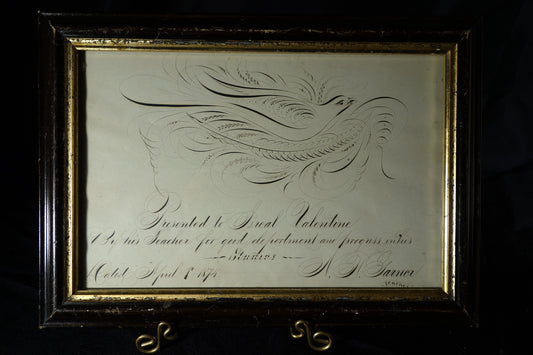 Presented to Sreal Valentine
By his Teacher for good deportment and progress in his
Studies
Dated April 1st 1875
N. N. Farner
Teacher